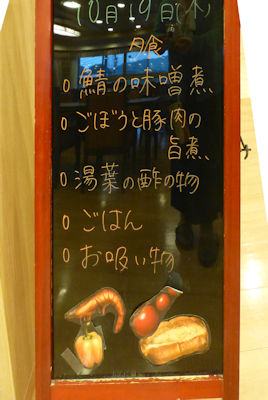 10月19日(木)
夕食
○鯖の味噌煮
○ごぼうと豚肉の
旨煮
○湯葉の酢の物
○ごはん
○お吸い物